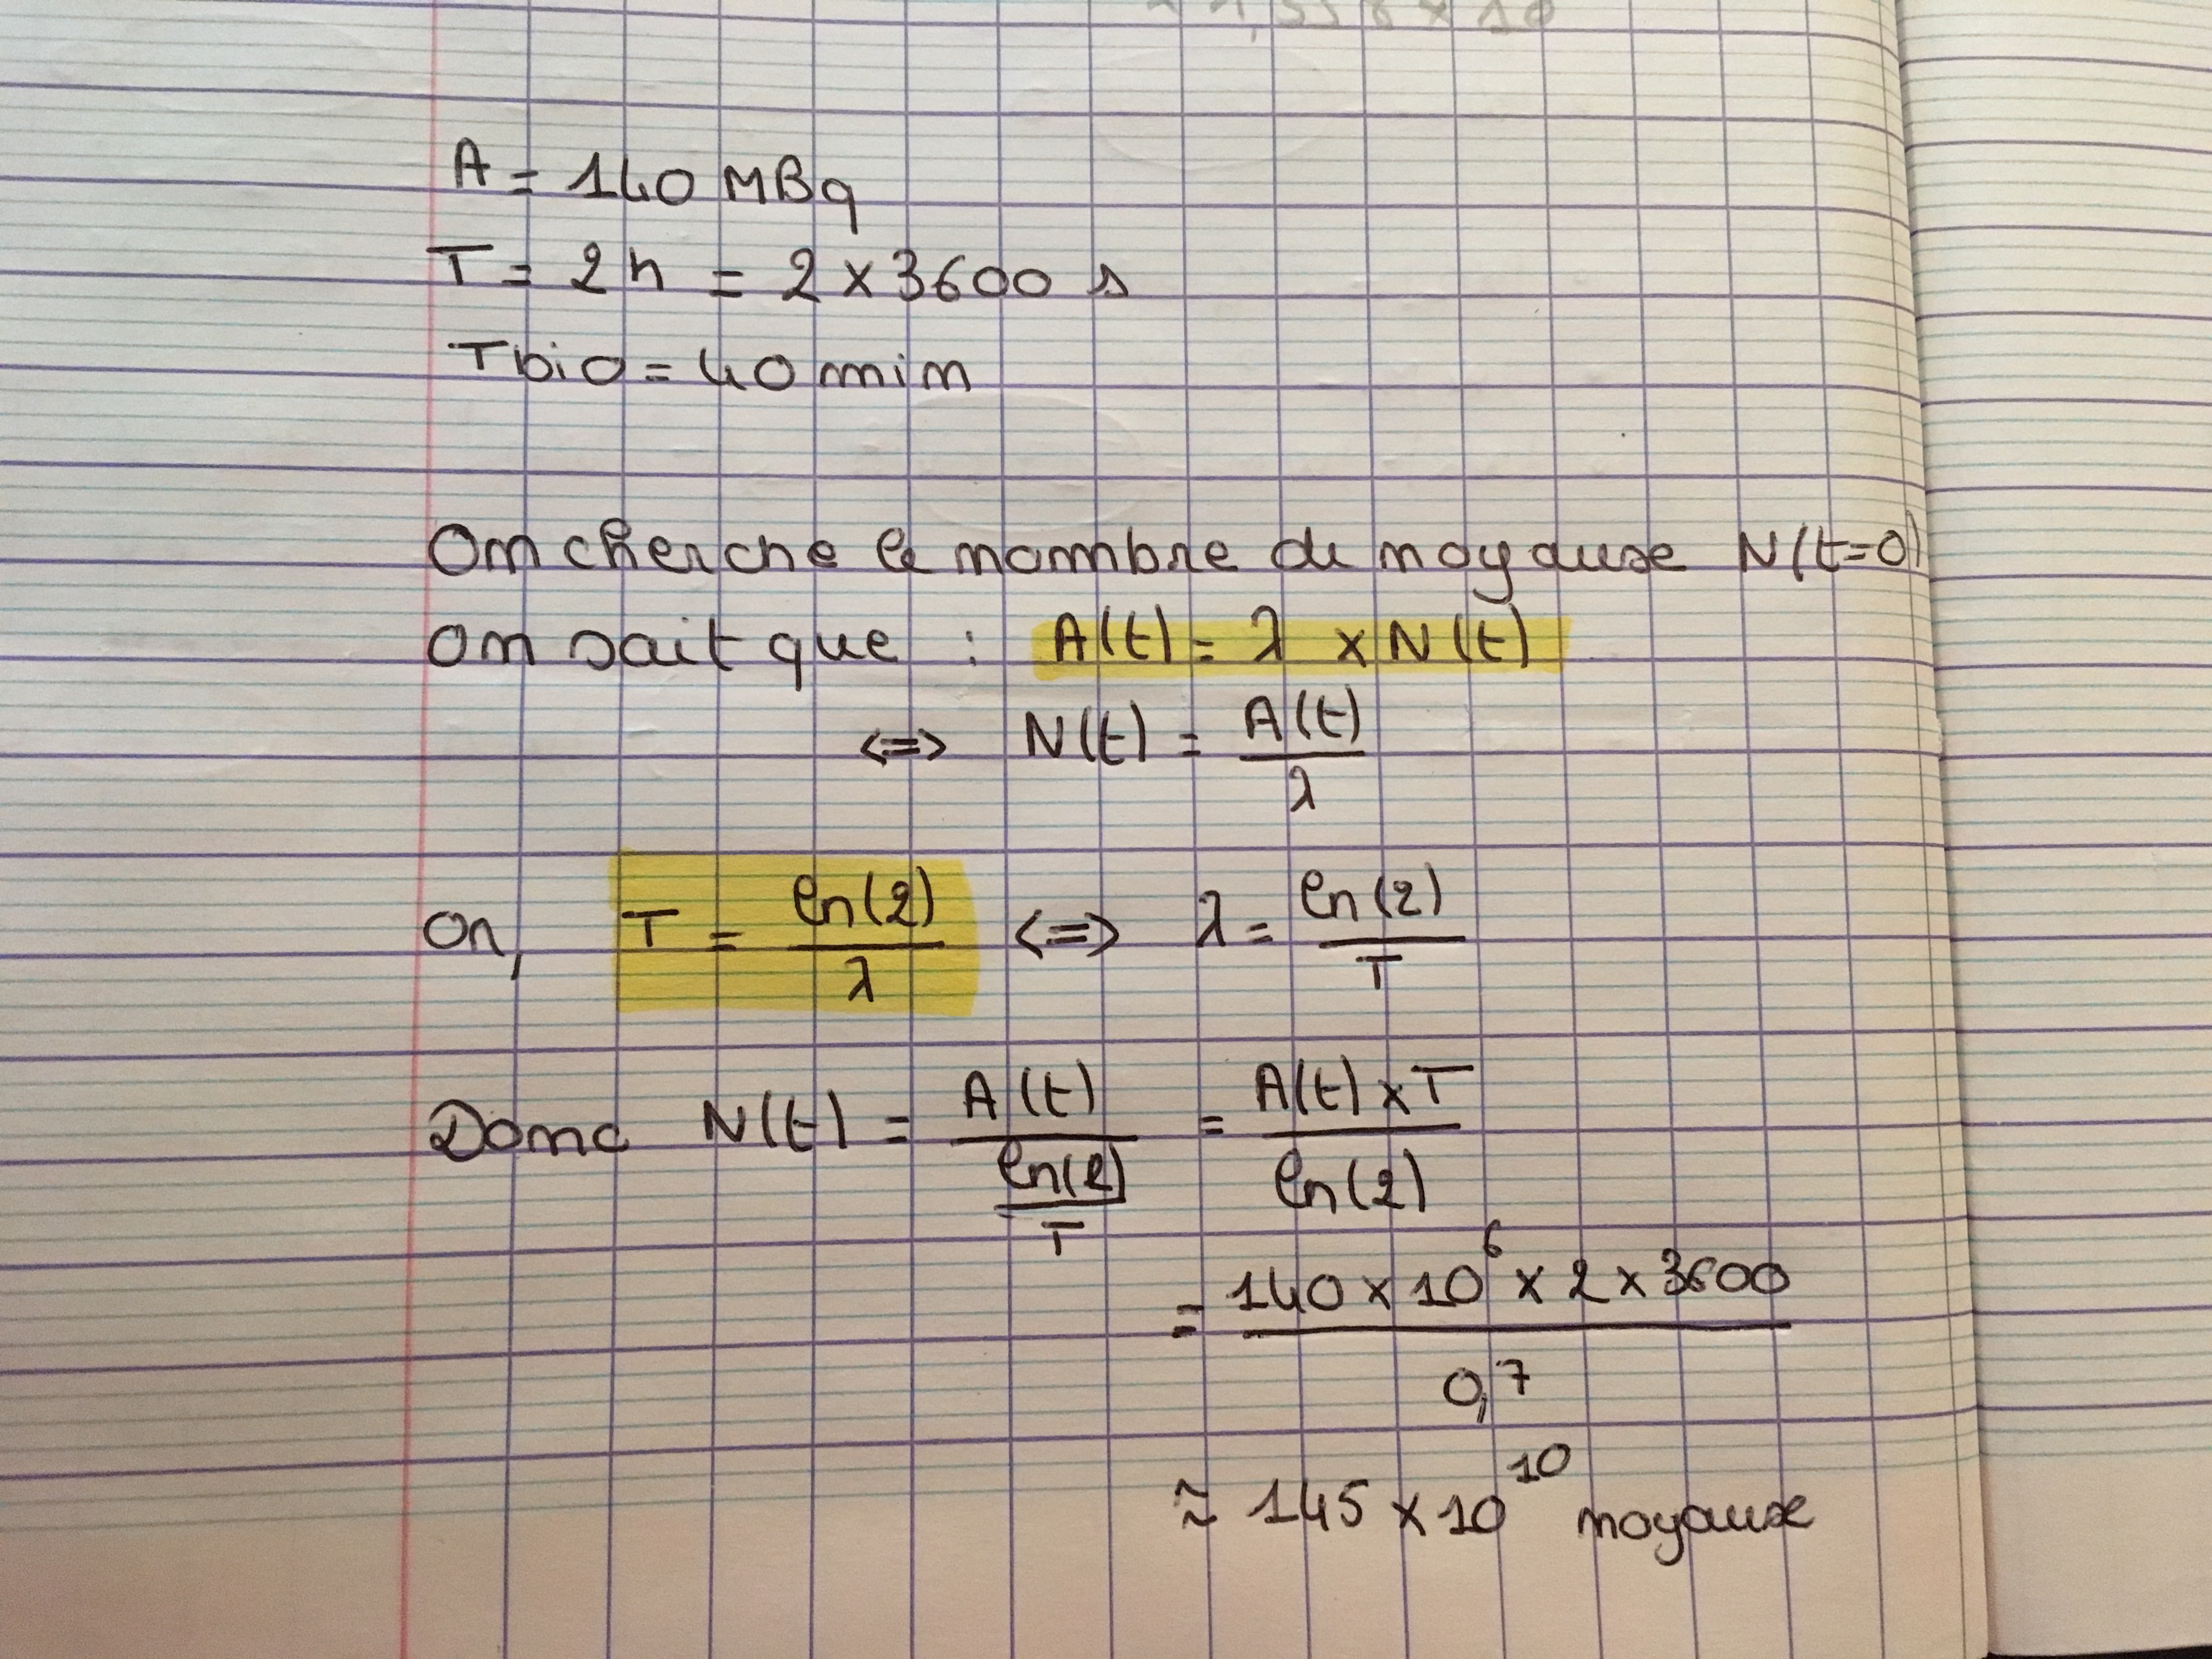 A = 140 MBq
T = 2h = 2 x 3600 s
Tbio = 40 min
On cherche le nombre de noyaux N(t=0)
on sait que : A(t) = λ x N(t)
<=> N(t) = A(t) / λ
Or, T = ln(2) / λ <=> λ = ln(2) / T
Donc N(t) = A(t) / (ln(2) / T) = A(t) x T / ln(2)
= 140 x 10⁶ x 2 x 3600 / 0,7
≈ 145 x 10¹⁰ noyaux